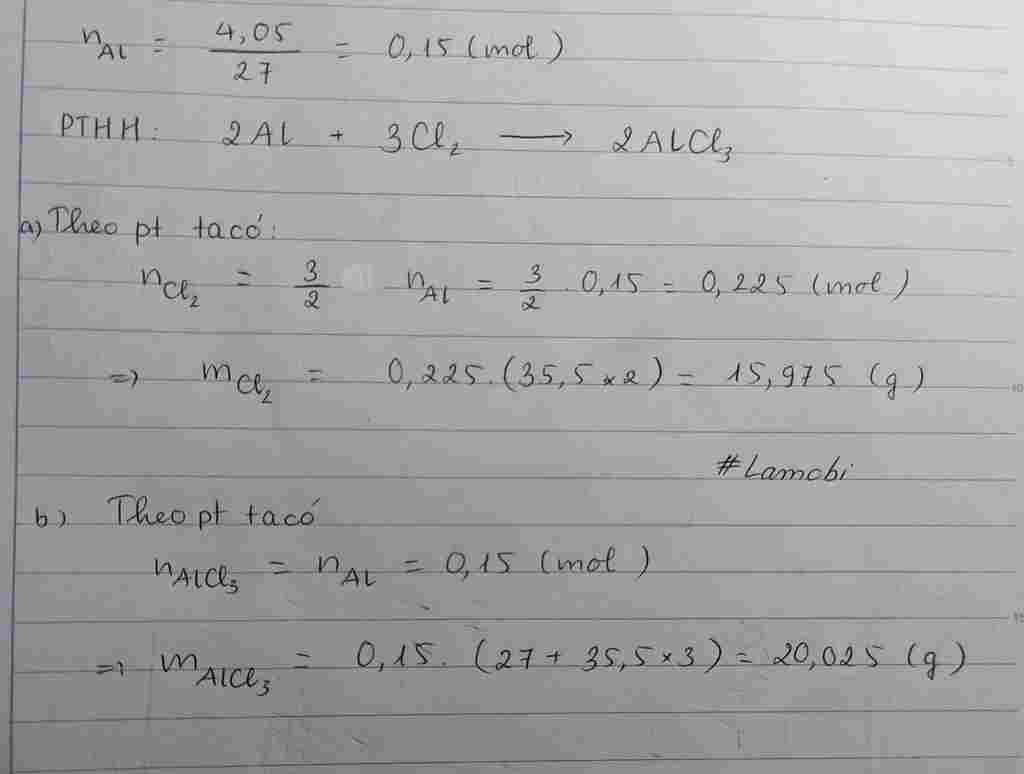 nAl = 4,05/27 = 0,15 (mol)
PTHH: 2Al + 3Cl₂ ⟶ 2AlCl₃
a) Theo pt ta có:
nCl₂ = 3/2 nAl = 3/2 . 0,15 = 0,225 (mol)
=> mCl₂ = 0,225.(35,5 x 2) = 15,975 (g)
#Lamobi
b) Theo pt ta có
nAlCl₃ = nAl = 0,15 (mol)
=> mAlCl₃ = 0,15. (27 + 35,5 x 3) = 20,025 (g)